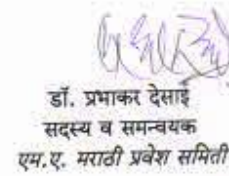 डॉ. प्रभाकर देसाई
सदस्य व समन्वयक
एम.ए. मराठी प्रवेश समिती